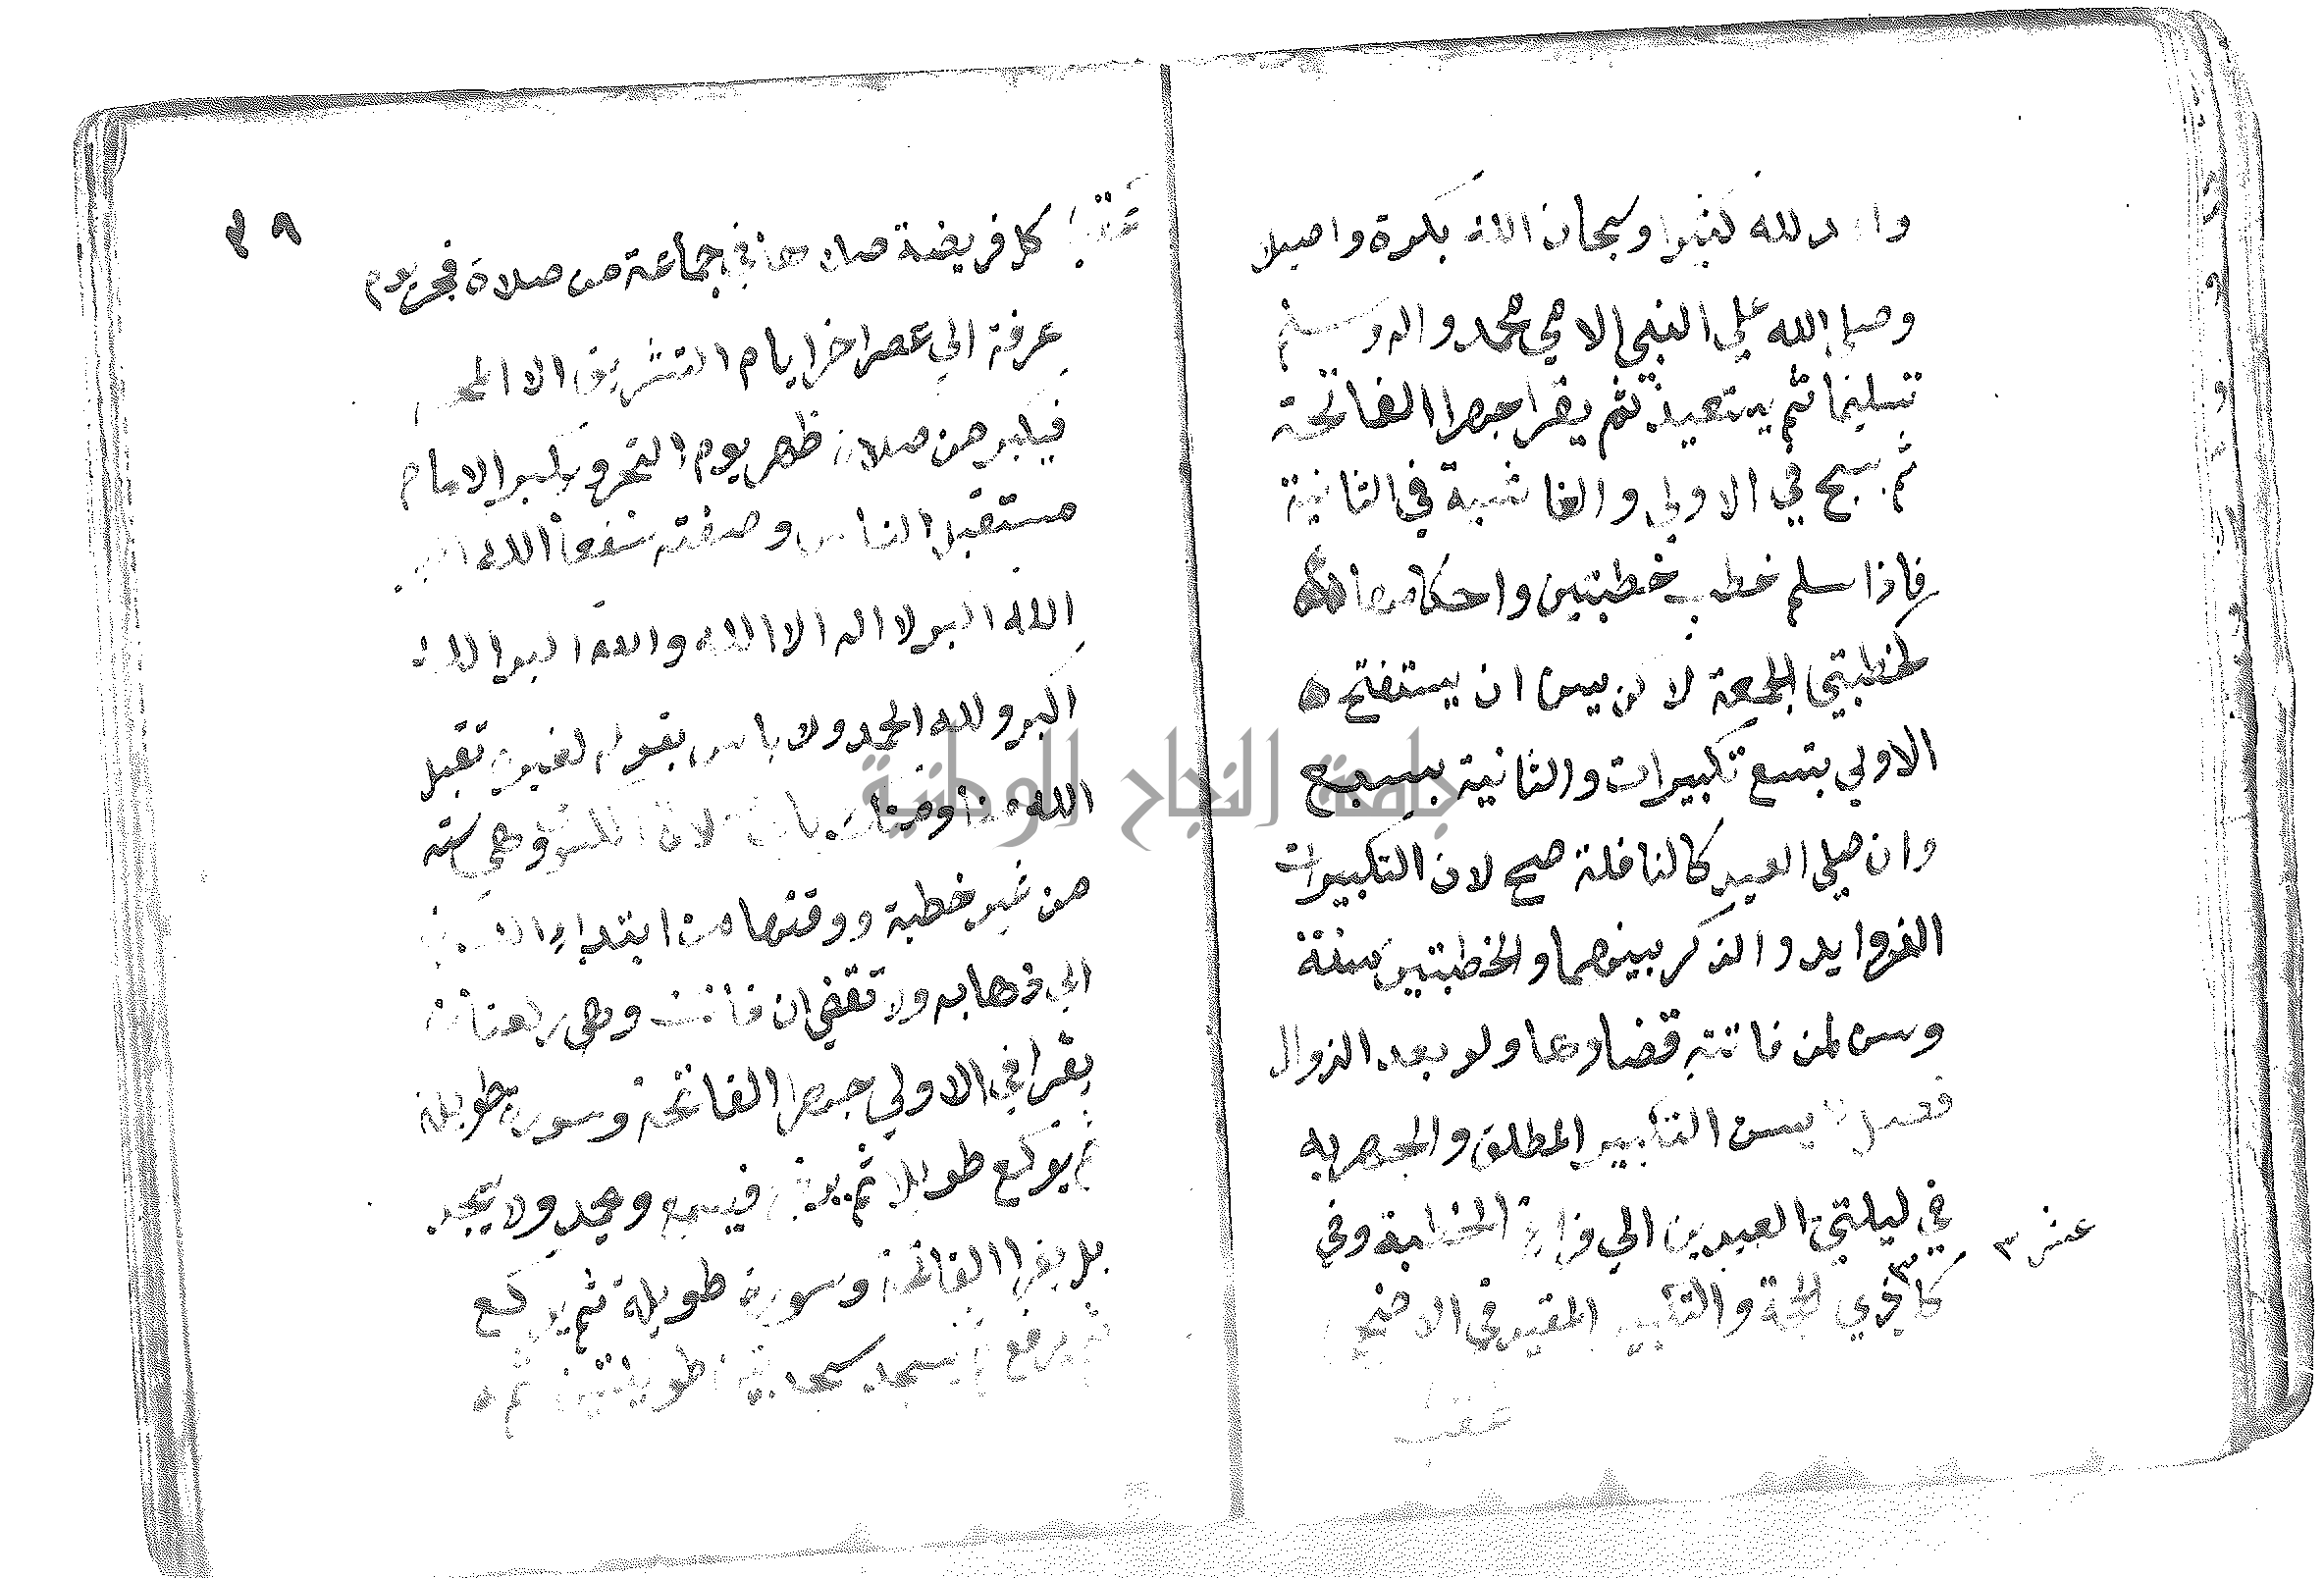 لله كثيرا وسبحان الله بكرة واصيلا
وصلي الله علي النبي الامي محمد واله وسلم
تسليما ثم يستعيذ ثم يقرا جهرا الفاتحة
ثم سبح في الاولي والغاشية في الثانية
فاذا سلم خطب خطبتين واحكامها
كخطبتي الجمعة لاكن يسن ان يستفتح
الاولي بتسع تكبيرات والثانية بسبع
وان صلي العيد كالنافلة صح لان التكبيرات
الزوايد والذكر بينهما والخطبتين سنة
وسن لمن فاتته قضاوها ولو بعد الزوال
فصل يسن التكبير المطلق والجهر به
في ليلتي العيدين الي فراغ الخطبة وفي
عشر
كل ذي الحجة والتكبير المقيد في الاضحي
عقب
٣٩
عقب كل فريضة صلاها في جماعة من صلاة فجر يوم
عرفة الي عصر اخر ايام التشريق الا المحرم
فيكبر من صلاة ظهر يوم النحر ويكبر الامام
مستقبل الناس وصفته شفعا الله اكبر
الله اكبر لا اله الا الله والله اكبر الله
اكبر ولله الحمد ولا باس بقوله لغيره تقبل
الله منا ومنك باب صلاة الكسوف وهي سنة
من غير خطبة ووقتها من ابتداء الكسوف
الي ذهابه ولا تقضي ان فاتت وهي ركعتان
يقرا في الاولي جهرا الفاتحة وسورة طويلة
ثم يركع طويلا ثم يرفع فيسمع ويحمد ولا يسجد
بل يقرا الفاتحة وسورة طويلة ثم يركع
ثم يرفع ثم يسجد سجدتين طويلتين ثم
جامعة النجاح الوطنية